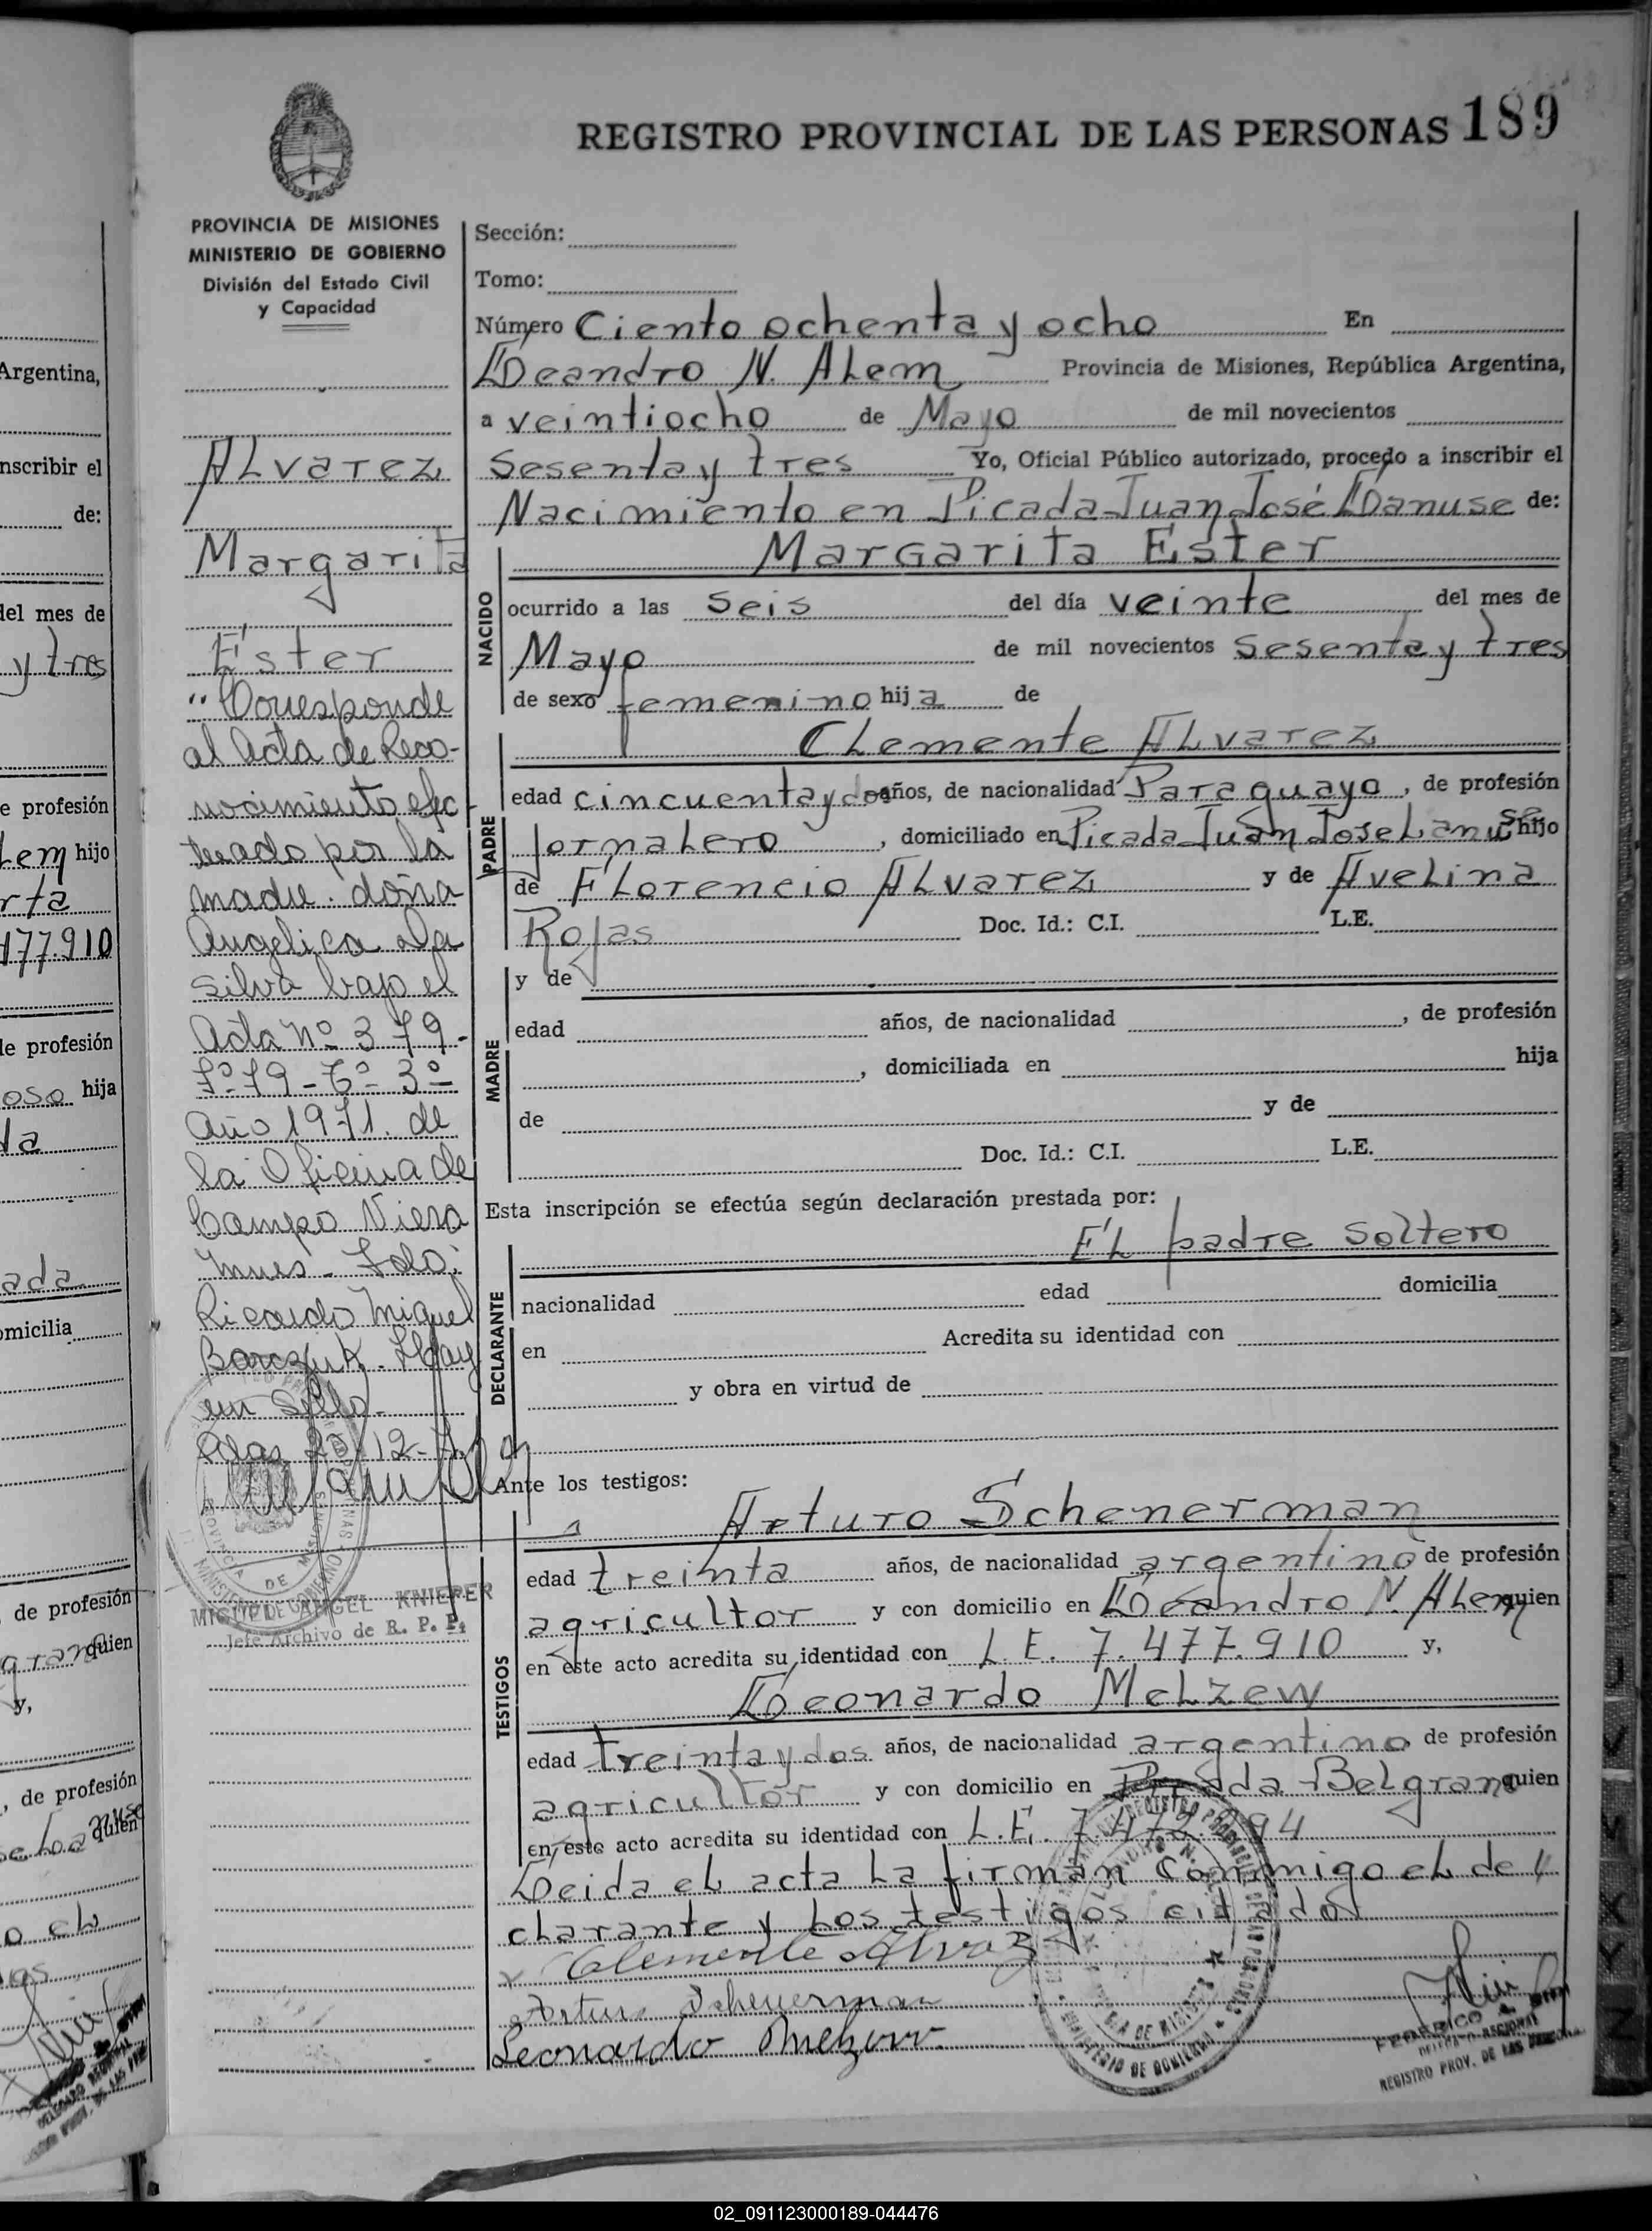 REGISTRO PROVINCIAL DE LAS PERSONAS 189
PROVINCIA DE MISIONES
MINISTERIO DE GOBIERNO
División del Estado Civil
y Capacidad
Alvarez
Margarita
Ester
"Corresponde
al Acta de Reco-
nocimiento efec-
tuado por la
madre. doña
Angelica Da
Silva bajo el
Acta Nº 379-
Fº 79 - Tº 3º
Año 1971. de
la Oficina de
Campo Viera
Ricardo Miguel
Hay
un Sello.
Pdas 12-7
MIGUEL ANGEL KNIEPER
Jefe Archivo de R. P. P.
Sección:
Tomo:
Número Ciento ochenta y ocho En
Leandro N. Alem Provincia de Misiones, República Argentina,
a veintiocho de Mayo de mil novecientos
Sesenta y tres Yo, Oficial Público autorizado, procedo a inscribir el
Nacimiento en Picada Juan José Lanuse de:
NACIDO
Margarita Ester
ocurrido a las Seis del día veinte del mes de
Mayo de mil novecientos Sesenta y tres
de sexo femenino hija de
PADRE
Clemente Alvarez
edad cincuenta y dos años, de nacionalidad Paraguayo, de profesión
Jornalero, domiciliado en Picada Juan Jose Lanuse hijo
de Florencio Alvarez y de Avelina
Rojas Doc. Id.: C.I. L.E.
MADRE
y de
edad años, de nacionalidad , de profesión
, domiciliada en hija
de y de
Doc. Id.: C.I. L.E.
Esta inscripción se efectúa según declaración prestada por:
DECLARANTE
El padre soltero
nacionalidad edad domicilia
en Acredita su identidad con
y obra en virtud de
Ante los testigos:
TESTIGOS
Arturo Schenerman
edad treinta años, de nacionalidad argentino de profesión
agricultor y con domicilio en Leandro N. Alem quien
en este acto acredita su identidad con L.E. 7.477.910 y,
Leonardo Melzew
edad treinta y dos años, de nacionalidad argentino de profesión
agricultor y con domicilio en Picada Belgrano quien
en este acto acredita su identidad con L.E.
Leida el acta la firman conmigo el de
clarante y los testigos citados
Clemente Alvarez
Arturo Scheuerman
Leonardo
FEDERICO
REGISTRO PROV. DE LAS
Argentina,
inscribir el
de:
del mes de
y tres
e profesión
Lem hijo
rta
177.910
de profesión
oso hija
da
ada
omicilia
, de profesión
quien
y,
, de profesión
quien
o el
02_091123000189-044476